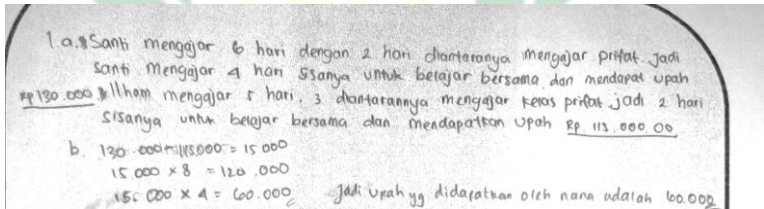 1.a. Santi mengajar 6 hari dengan 2 hari diantaranya mengajar prifat. Jadi
Santi mengajar 4 hari sisanya untuk belajar bersama dan mendapat upah
Rp 130.000 Ilham mengajar 5 hari, 3 diantarannya mengajar kelas prifat jadi 2 hari
sisanya untuk belajar bersama dan mendapatkan upah Rp. 115.000.00
b. 130.000 - 115.000 = 15 000
15.000 x 8 = 120.000
15.000 x 4 = 60.000 Jadi upah yg didapatkan oleh nana adalah 60.000